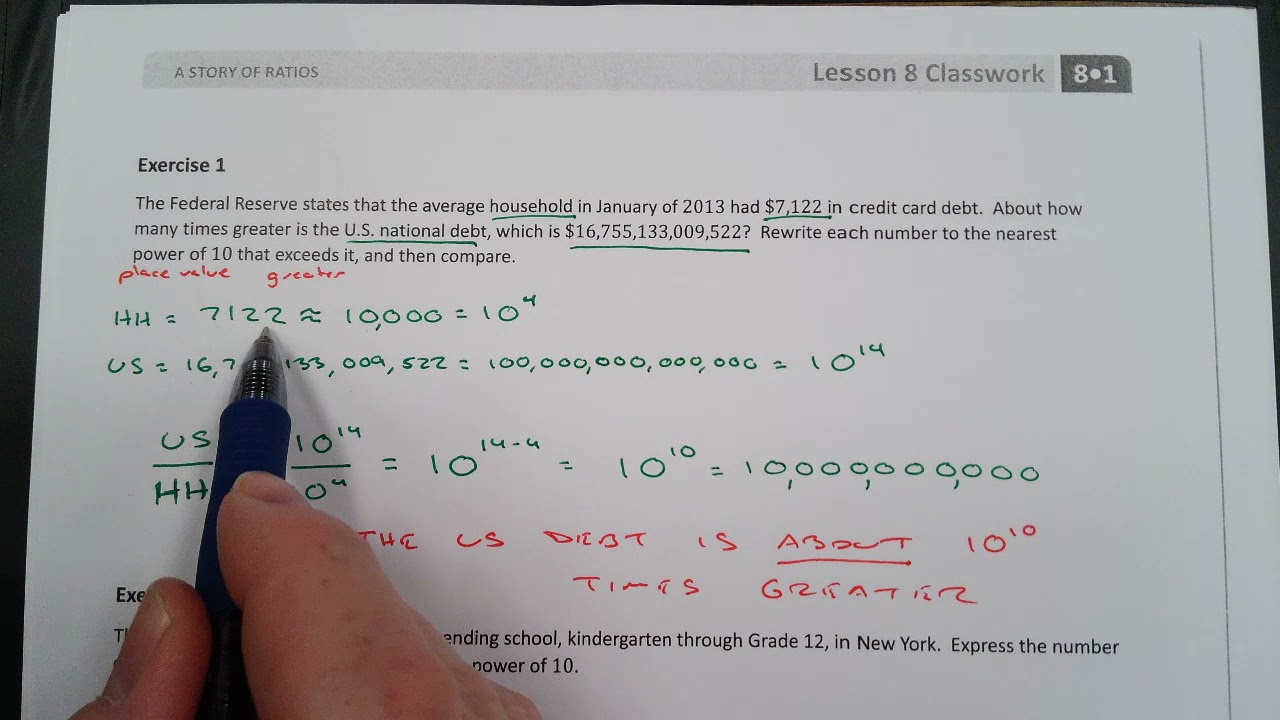 A STORY OF RATIOS
Lesson 8 Classwork 8•1
Exercise 1
The Federal Reserve states that the average household in January of 2013 had $7,122 in credit card debt. About how
many times greater is the U.S. national debt, which is $16,755,133,009,522? Rewrite each number to the nearest
power of 10 that exceeds it, and then compare.
place value greater
HH = 7122 ≈ 10,000 = 10⁴
US = 16,7 133,009,522 = 100,000,000,000,000 = 10¹⁴
US 10¹⁴ = 10¹⁴⁻⁴ = 10¹⁰ = 10,000,000,000
HH 0⁴
THE US DEBT IS ABOUT 10¹⁰
TIMES GREATER
Exe
ending school, kindergarten through Grade 12, in New York. Express the number
power of 10.